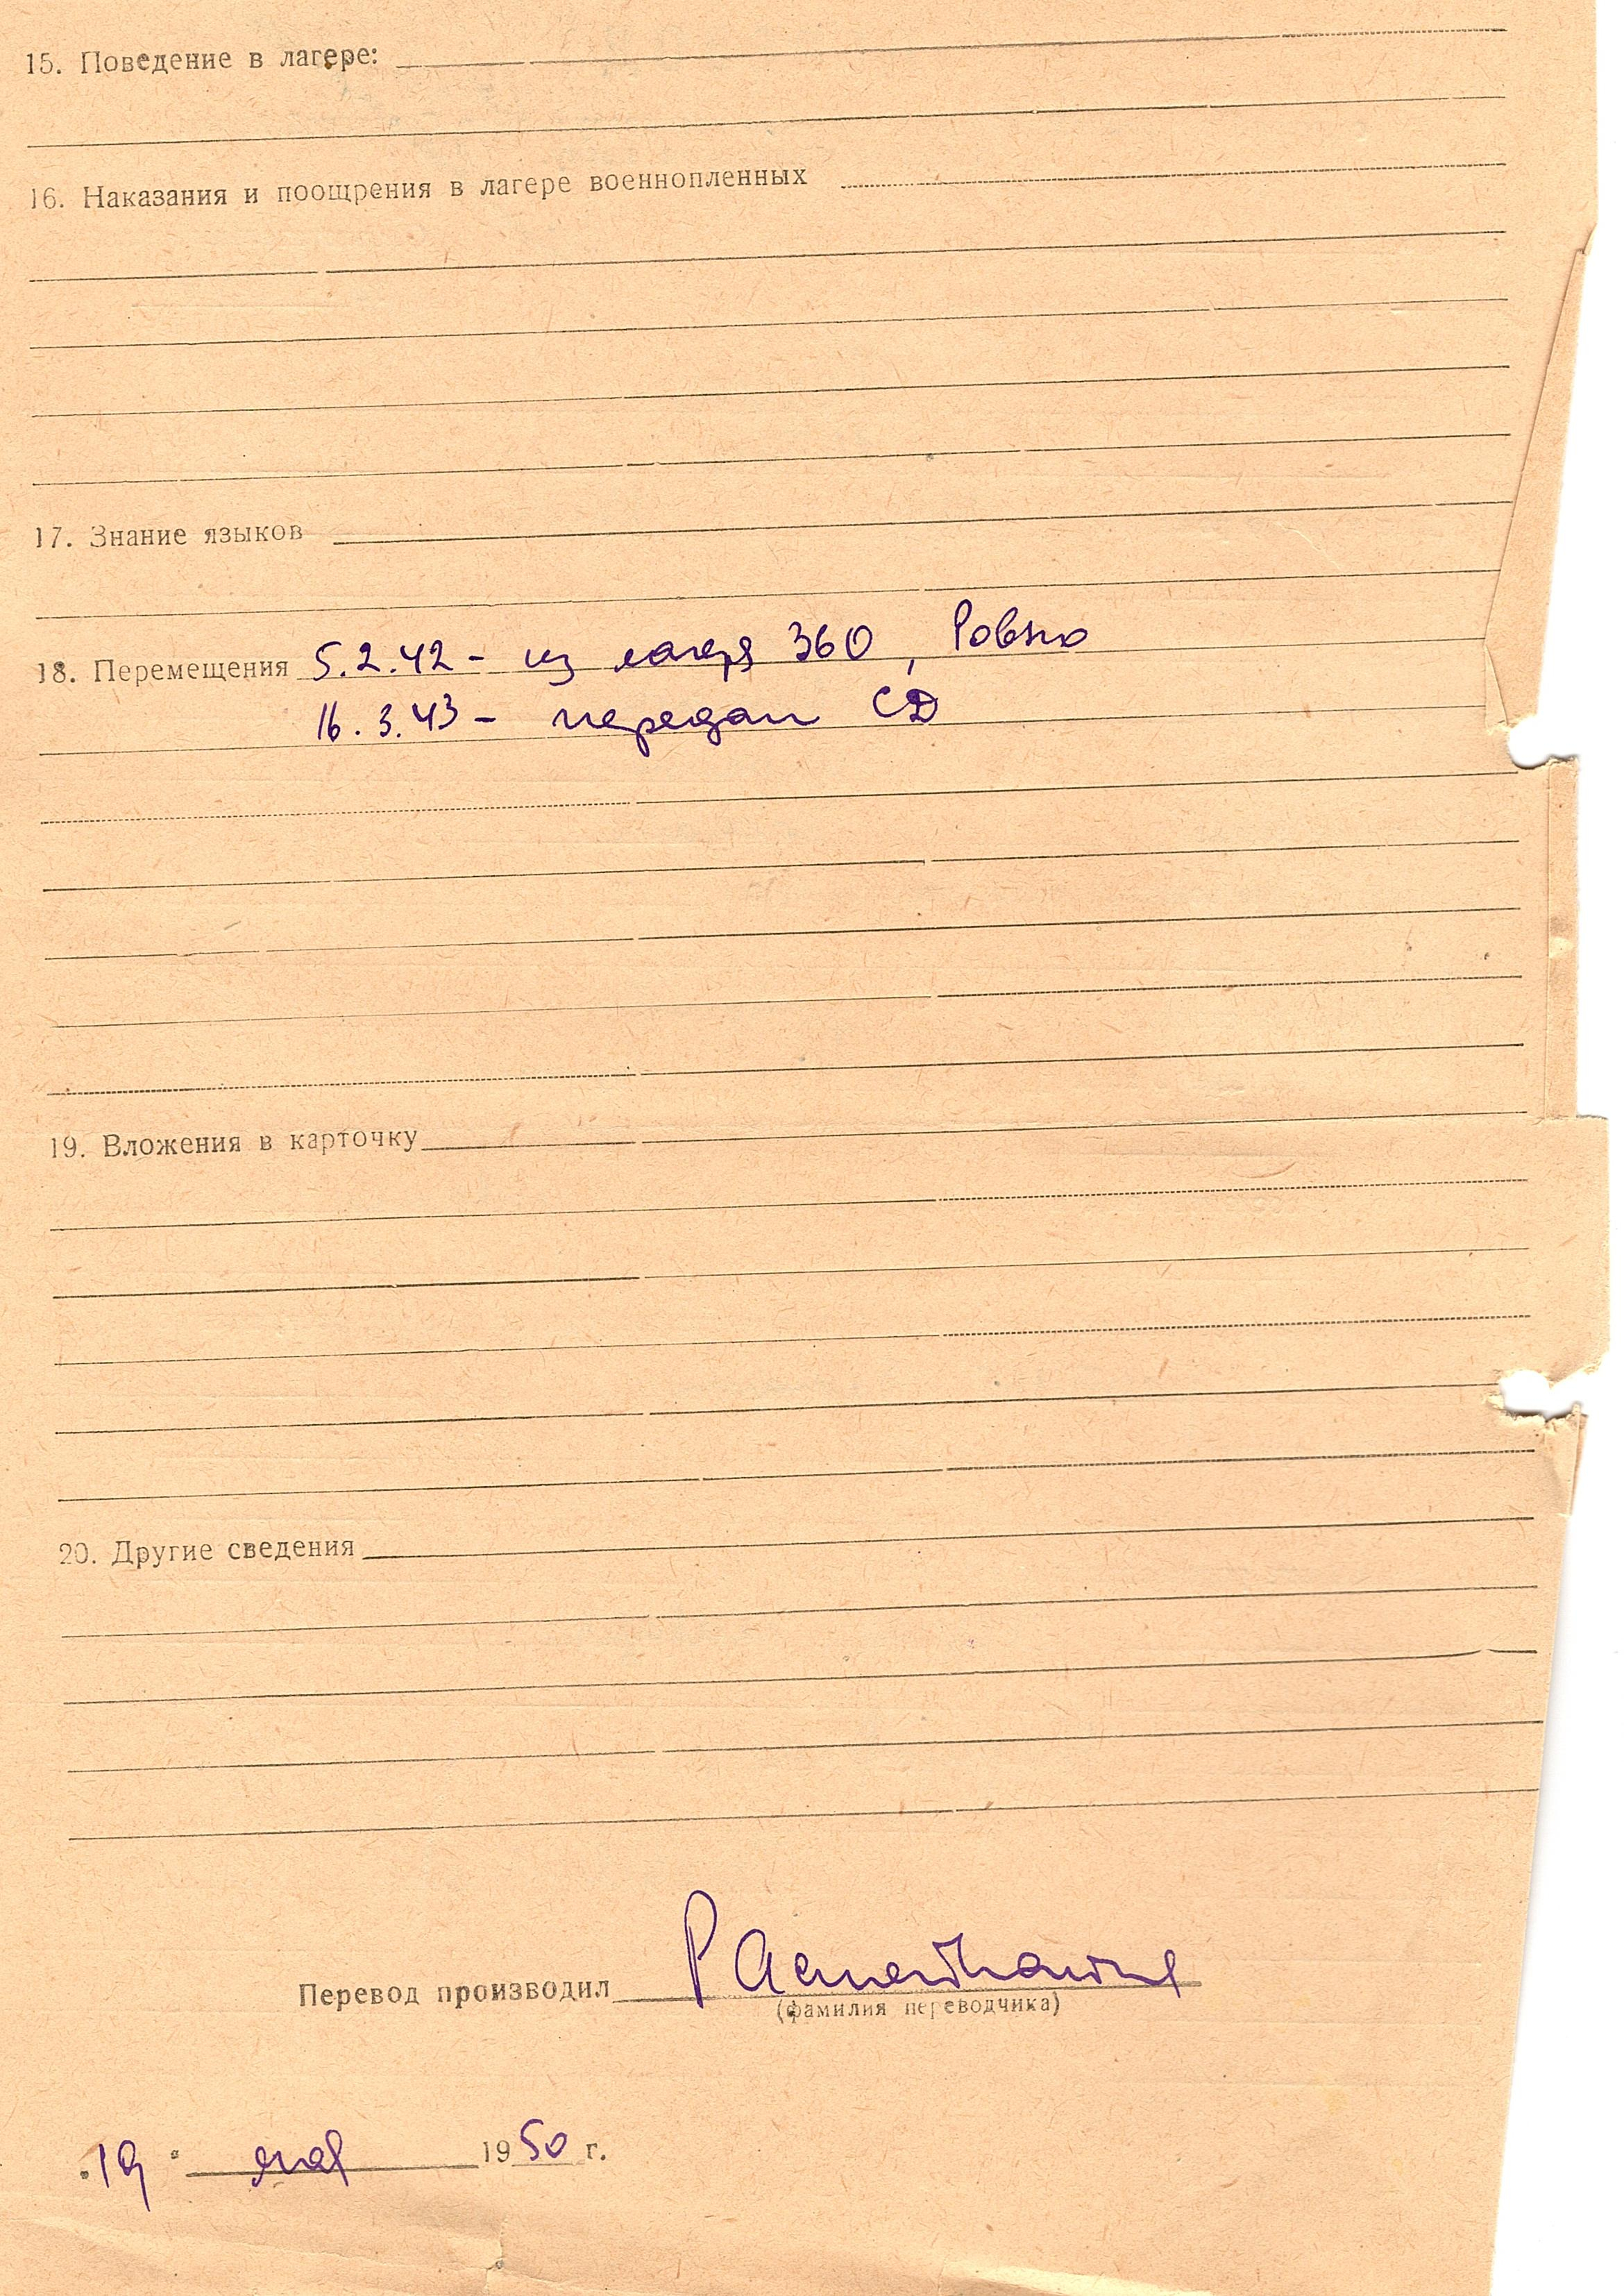 15. Поведение в лагере:
16. Наказания и поощрения в лагере военнопленных
17. Знание языков
18. Перемещения 5.2.42 - из лагеря 360, Ровно
16.3.43 - передан СД
19. Вложения в карточку
20. Другие сведения
Перевод производил
(фамилия переводчика)
"19" мая 1950 г.